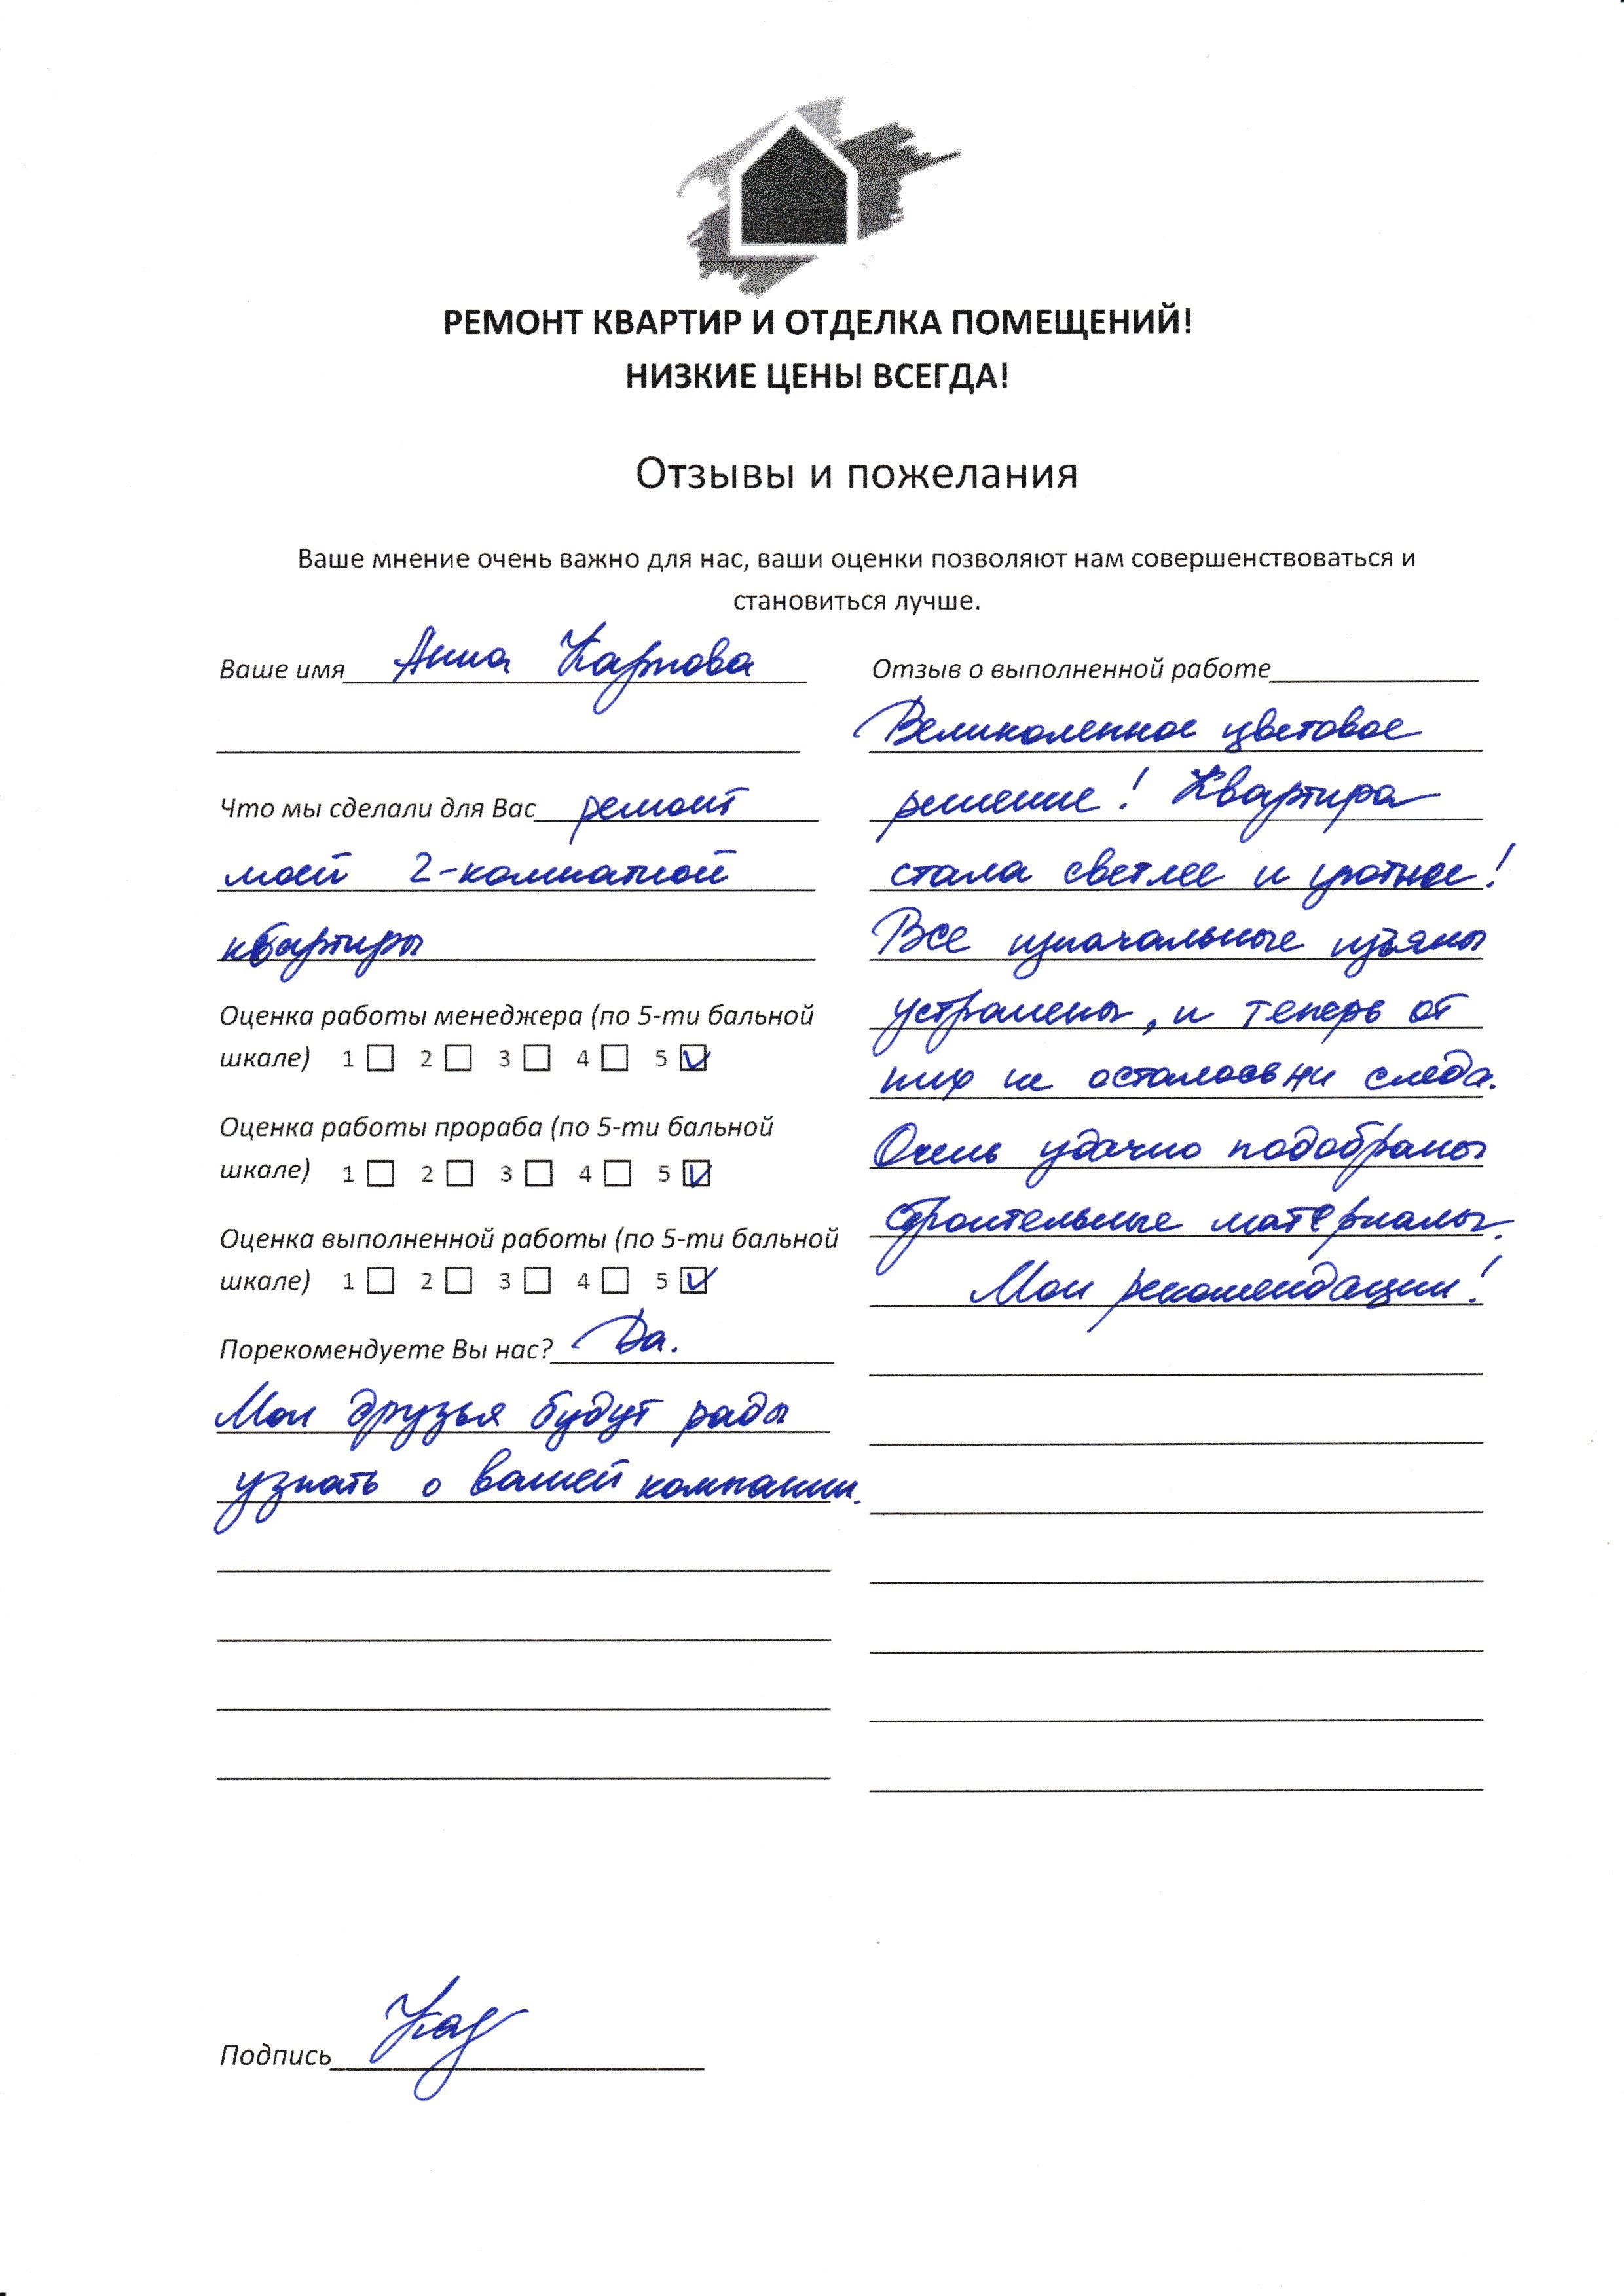 РЕМОНТ КВАРТИР И ОТДЕЛКА ПОМЕЩЕНИЙ!
НИЗКИЕ ЦЕНЫ ВСЕГДА!
Отзывы и пожелания
Ваше мнение очень важно для нас, ваши оценки позволяют нам совершенствоваться и
становиться лучше.
Ваше имя Анна Карпова
Что мы сделали для Вас ремонт
моей 2-комнатной
квартиры
Оценка работы менеджера (по 5-ти бальной
шкале) 1 2 3 4 5
Оценка работы прораба (по 5-ти бальной
шкале) 1 2 3 4 5
Оценка выполненной работы (по 5-ти бальной
шкале) 1 2 3 4 5
Порекомендуете Вы нас? Да.
Мои друзья будут рады
узнать о вашей компании.
Отзыв о выполненной работе
Великолепное цветовое
решение! Квартира
стала светлее и уютнее!
Все изначальные изъяны
устранены, и теперь от
них не осталось ни следа.
Очень удачно подобраны
строительные материалы.
Мои рекомендации!
Подпись